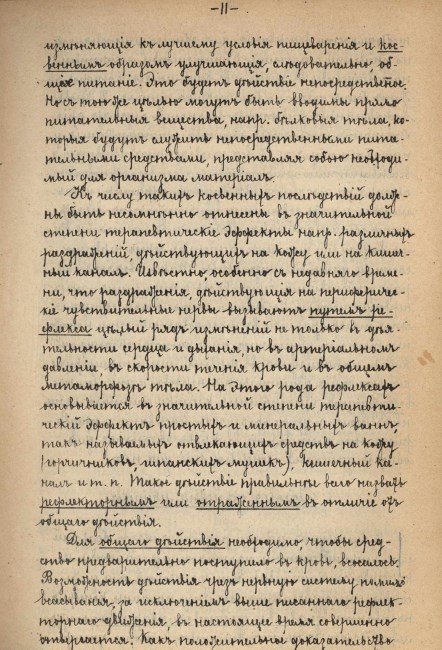 -11-
измѣняющія къ лучшему условія пищеваренія и кос-
веннымъ образомъ улучшающія, слѣдовательно, об-
щее питаніе. Это будетъ дѣйствіе непосредственное.
Но съ тою же цѣлью могутъ быть вводимы прямо
питательныя вещества, напр. бѣлковыя тѣла, ко-
торыя будутъ служить непосредственными пита-
тельными средствами, представляя собою необходи-
мый для организма матеріалъ.
Къ числу такихъ косвенныхъ послѣдствій долж-
ны быть несомнѣнно отнесены въ значительной
степени терапевтическіе эффекты напр. различныхъ
раздраженій, дѣйствующихъ на кожу или на кишеч-
ный каналъ. Извѣстно, особенно съ недавняго време-
ни, что раздраженія, дѣйствующія на периферичес-
кіе чувствительные нервы вызываютъ путемъ ре-
флекса цѣлый рядъ измѣненій не только въ дѣя-
тельности сердца и дыханія, но въ артеріальномъ
давленіи, въ скорости теченія крови и въ общемъ
метаморфозѣ тѣла. На этого рода рефлексахъ
основывается въ значительной степени терапевти-
ческій эффектъ простыхъ и минеральныхъ ваннъ,
такъ называемыхъ отвлекающихъ средствъ на кожу
(горчичниковъ, шпанскихъ мушекъ), кишечный ка-
налъ и т. п. Такое дѣйствіе правильнѣе всего назвать
рефлекторнымъ или отраженнымъ въ отличіе отъ
общаго дѣйствія.
Для общаго дѣйствія необходимо, чтобы сред-
ство предварительно поступило въ кровь, всосалось.
Возможность дѣйствія чрезъ нервную систему помимо
всасыванія, за исключеніемъ выше писаннаго рефлек-
торнаго движенія, въ настоящее время совершенно
отвергается. Какъ положительное доказательство